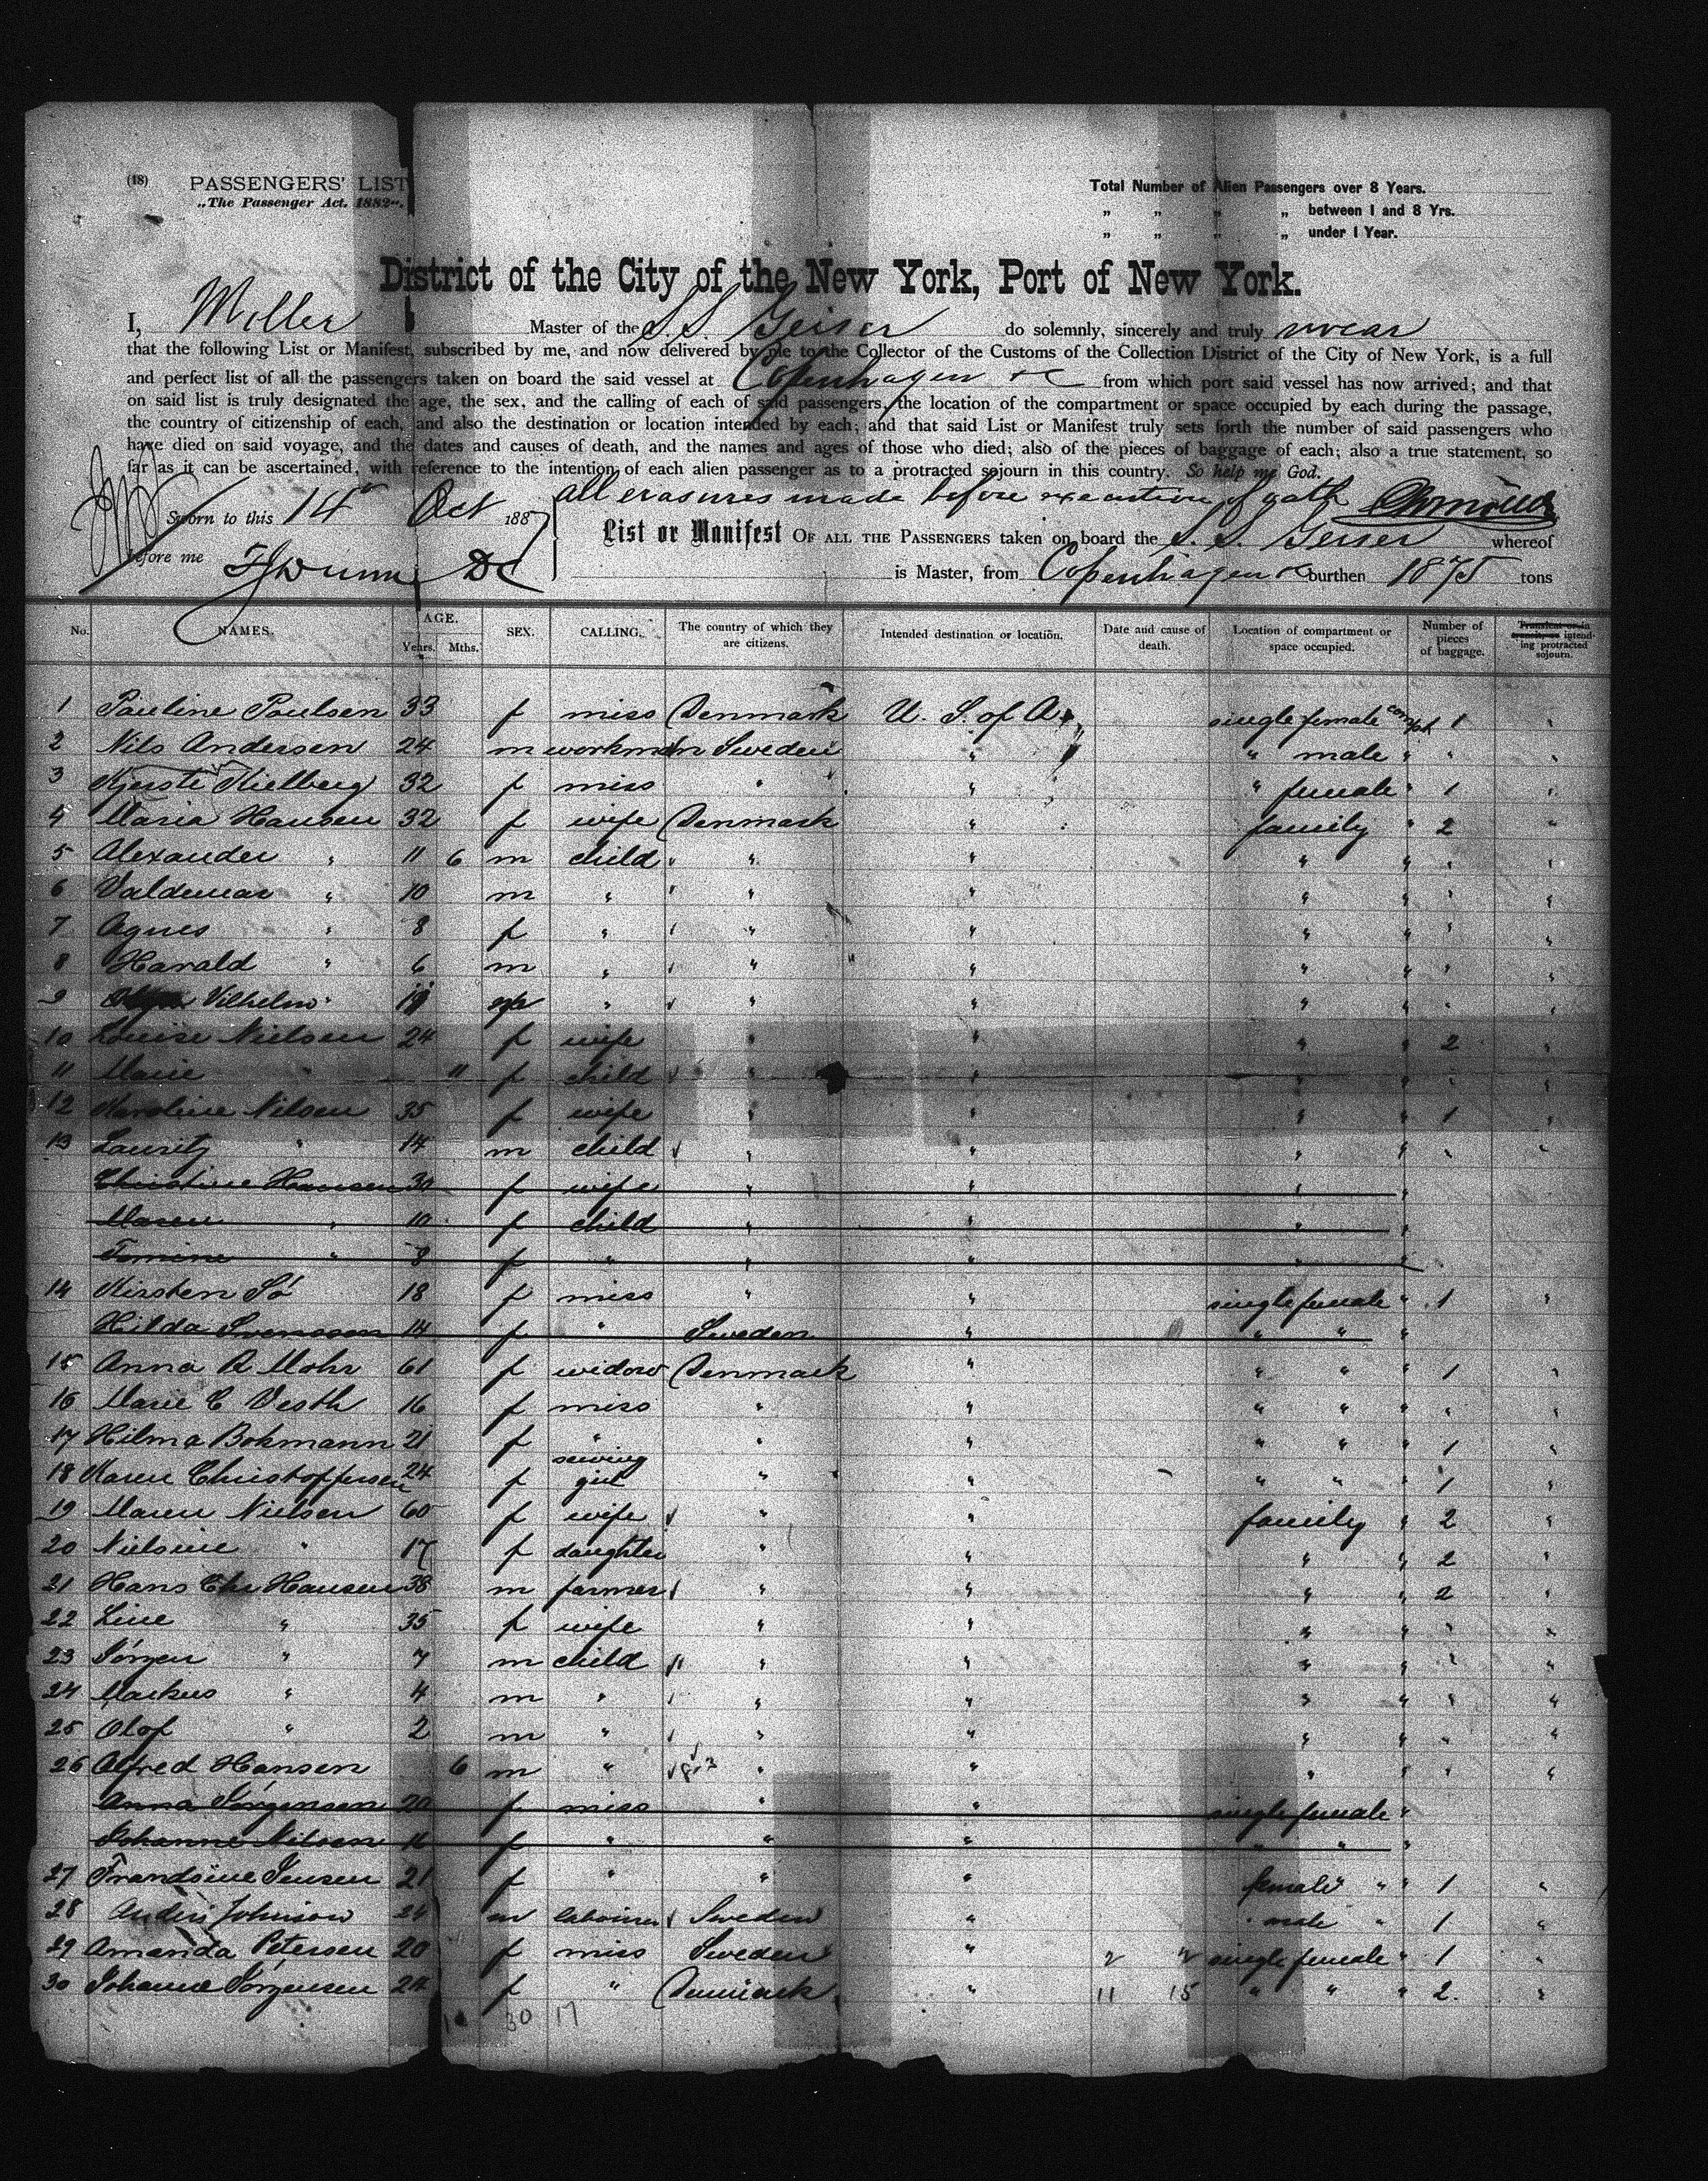 (18) PASSENGERS' LIST
„The Passenger Act. 1882“.
Total Number of Alien Passengers over 8 Years.
„ „ „ „ between 1 and 8 Yrs.
„ „ „ „ under 1 Year.
District of the City of the New York, Port of New York.
I, Möller Master of the S.S. Geiser do solemnly, sincerely and truly swear
that the following List or Manifest, subscribed by me, and now delivered by me to the Collector of the Customs of the Collection District of the City of New York, is a full
and perfect list of all the passengers taken on board the said vessel at Copenhagen &c from which port said vessel has now arrived; and that
on said list is truly designated the age, the sex, and the calling of each of said passengers, the location of the compartment or space occupied by each during the passage,
the country of citizenship of each, and also the destination or location intended by each; and that said List or Manifest truly sets forth the number of said passengers who
have died on said voyage, and the dates and causes of death, and the names and ages of those who died; also of the pieces of baggage of each; also a true statement, so
far as it can be ascertained, with reference to the intention of each alien passenger as to a protracted sojourn in this country. So help me God.
all erasures made before execution of oath
Sworn to this 14th Oct 1887
List or Manifest OF ALL THE PASSENGERS taken on board the S.S. Geiser whereof
before me
is Master, from Copenhagen &c burthen 1875 tons
No. NAMES. AGE. Years. Mths. SEX. CALLING. The country of which they are citizens. Intended destination or location. Date and cause of death. Location of compartment or space occupied. Number of pieces of baggage. Transient or in transit, or intending protracted sojourn.
1 Pauline Paulsen 33 f miss Denmark U. S. of A. single female compt 1 "
2 Nils Andersen 24 m workman Sweden " " male " " "
3 Kjerste Kielberg 32 f miss " " " female " 1 "
4 Maria Hansen 32 f wife Denmark " family " 2 "
5 Alexander " 11 6 m child " " " " " "
6 Valdemar " 10 m " " " " " " "
7 Agnes " 8 f " " " " " " "
8 Harald " 6 m " " " " " " "
9 Vilhelm " " " " " " " "
10 Louise Nielsen 24 f wife " " " " 2 "
11 Marie " 11 f child " " " " " "
12 Karoline Nilsen 35 f wife " " " " 1 "
13 Lauritz " 14 m child " " " " " "
Christine Hansen 30 f wife " " " "
Maren " 10 f child " " " "
" 8 f " " " " "
14 Kirsten Sö 18 f miss " " single female " 1 "
Hilda Svensson 14 f " Sweden " " " "
15 Anna R Mohr 61 f widow Denmark " " " " 1 "
16 Marie C Vesth 16 f miss " " " " " " "
17 Hilma Bokmann 21 f " " " " " " 1 "
18 Karen Christoffersen 24 f sewing girl " " " " " 1 "
19 Maren Nielsen 60 f wife " " family " 2 "
20 Nielsine " 17 f daughter " " " " 2 "
21 Hans Chr Hansen 38 m farmer " " " " 2 "
22 Line " 35 f wife " " " " " "
23 Jörgen " 7 m child " " " " " "
24 Markus " 4 m " " " " " " "
25 Olof " 2 m " " " " " " "
26 Alfred Hansen 6 m " " " " " " "
Anna Jörgensen 20 f miss " " single female "
Johanne Nilsen 16 f " " " " " "
27 Frandsine Jensen 21 f " " " female " " 1 "
28 Anders Johnson 24 m labourer Sweden " " male " 1 "
29 Amanda Petersen 20 f miss Sweden " 2 2 single female " 1 "
30 Johanne Jörgensen 24 f " Denmark " 11 15 " " " 2 "
30 17